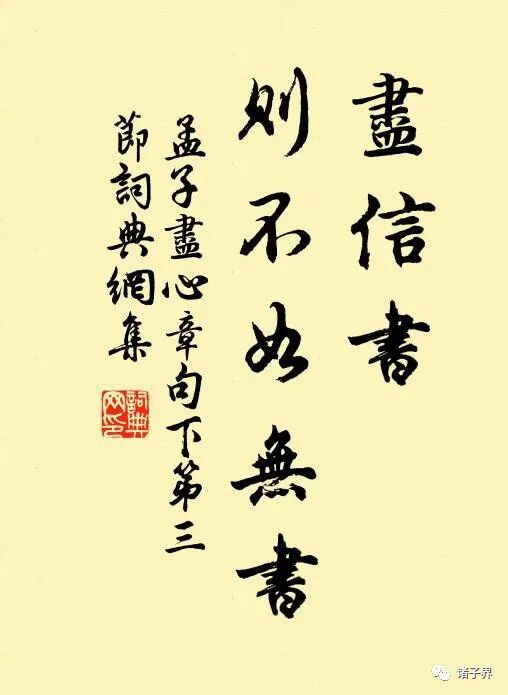 盡信書
則不如無書
孟子盡心章句下第三
節詞典網集
詞典
网印
诸子界